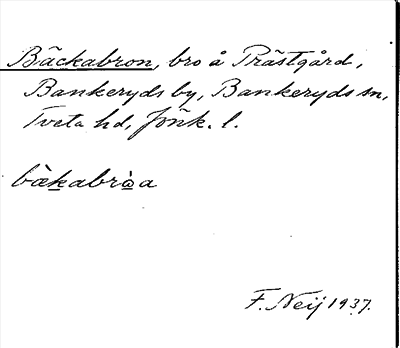 Bäckabron, bro å Prästgård,
Bankeryds by, Bankeryds sn,
Tveta hd, Jönk. l.
bàkabròa
F. Neij 1937.